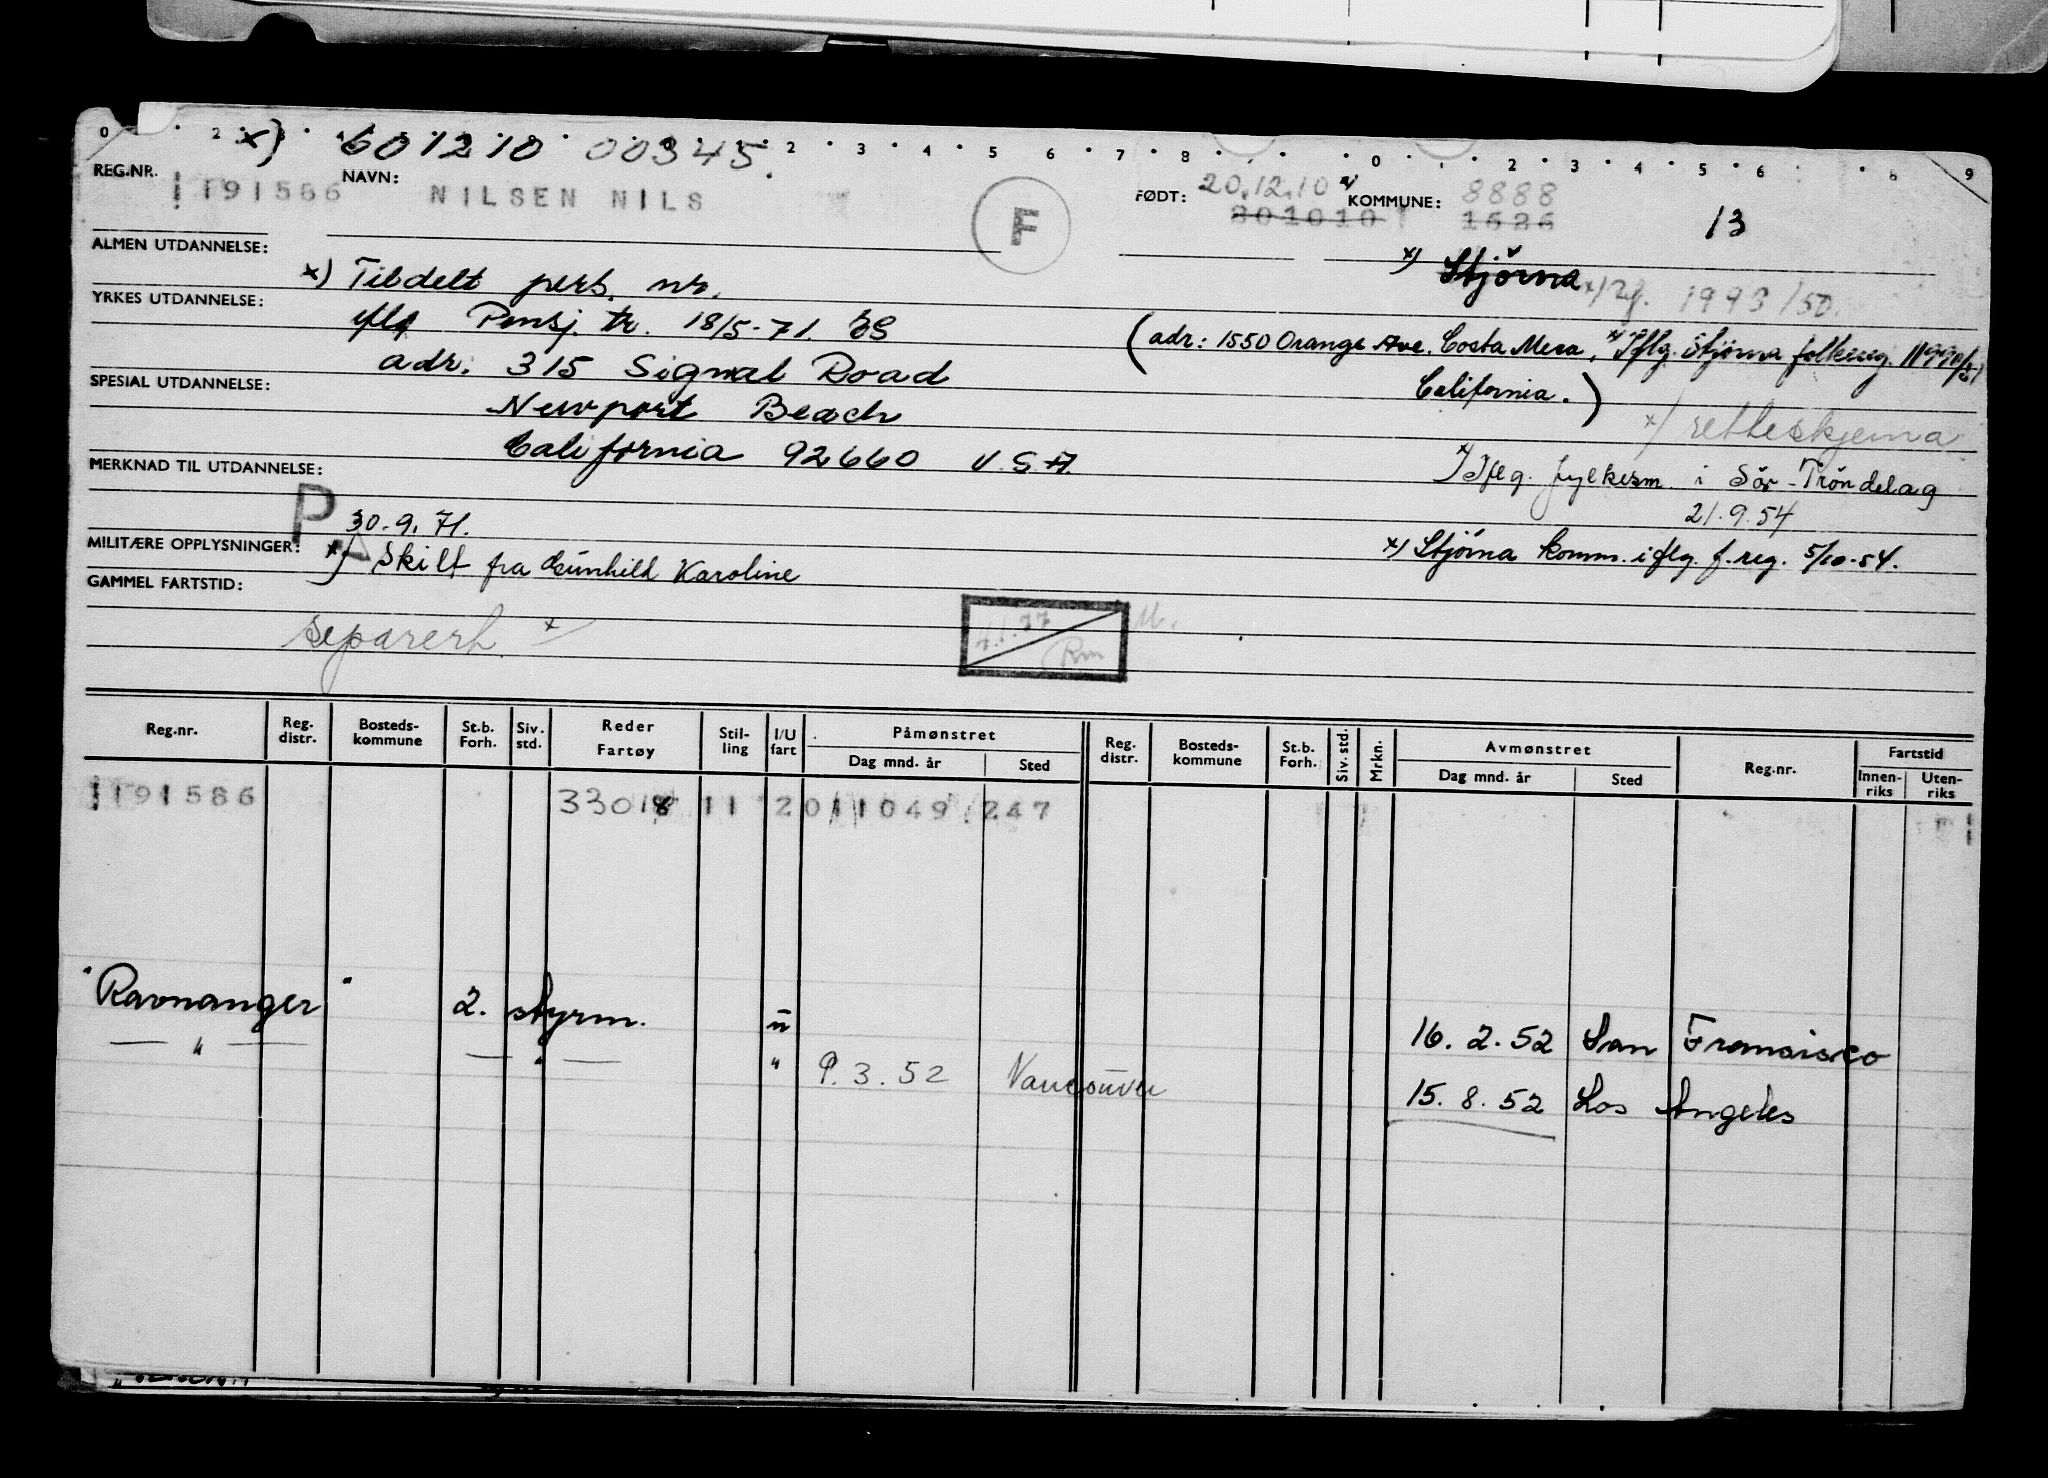 0 2 x) 601210 00345. 2 3 4 5 6 7 8 0 2 3 4 5 6 8 9
REG.NR. 191586 NAVN: NILSEN NILS F FØDT: 20.12.10 x) KOMMUNE: 8888
201010 1626 13
ALMEN UTDANNELSE:
x) Tildelt pers. nr. x) Stjörna x) 1993/50.
YRKES UTDANNELSE: iflg Pensj. tr. 18/5-71. ES
(adr: 1550 Orange Ave. Costa Mesa, California.) x) Iflg. Stjörna folkereg.
adr. 315 Signal Road
SPESIAL UTDANNELSE:
Newport Beach x) retteskjema
California 92660 U.S.A.
MERKNAD TIL UTDANNELSE: x) Iflg. fylkesm i Sör-Tröndelag
21.9.54
P 30.9.71.
MILITÆRE OPPLYSNINGER: x) Skilt fra Gunhild Karoline x) Stjörna komm. iflg. f.reg. 5/10-54.
GAMMEL FARTSTID:
separert x
M.
Rm
Reg.nr. Reg. distr. Bosteds-kommune St.b. Forh. Siv. std. Reder Fartøy Stil-ling I/U fart Påmønstret Reg. distr. Bosteds-kommune St.b. Forh. Siv. std. Mrkn. Avmønstret Reg.nr. Fartstid
Dag mnd. år Sted Dag mnd. år Sted Innen-riks Uten-riks
191586 33018 11 2 011049 247
"Ravnanger" 2. styrm. u 16.2.52 San Fransisco
— " — — " — " 9.3.52 Vancouver
15.8.52 Los Angeles